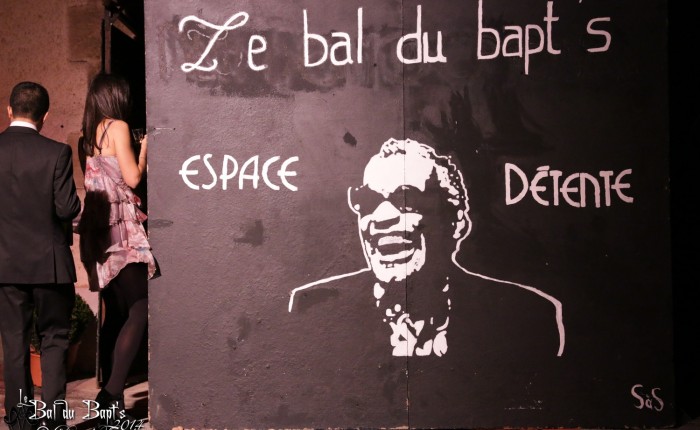 Ze bal du bapt's
ESPACE DÉTENTE
SàS
Le
Bal du Bapt's
2017